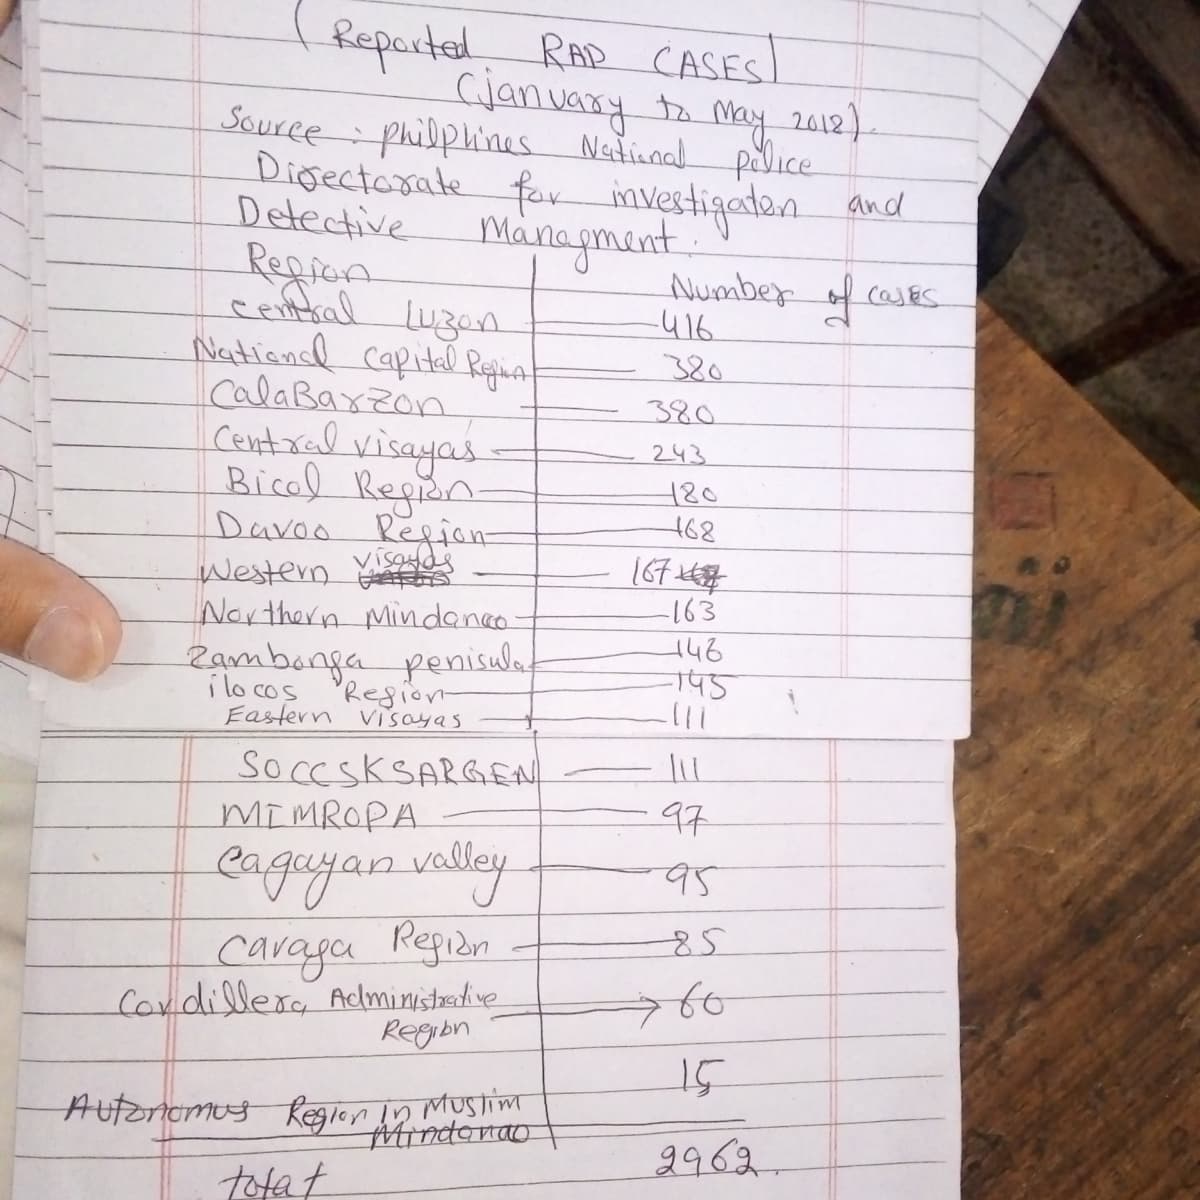 (Reported RAP CASES)
(january to May 2018).
Source : philplines National police
Directorate for investigaton and
Detective Managment.
Region Number of cases
central Luzon 416
National capital Region 380
CalaBarzon 380
Central visayas 243
Bicol Region 180
Davao Region 168
Western visayas 167
Northern Mindanao 163
Zambonga penisula 146
ilocos Region 145
Eastern visayas 111
SOCCSKSARGEN 111
MIMROPA 97
Cagayan valley 95
Caraga Region 85
Cordillera Administrative → 60
Region
15
Autonomus Region in Muslim
Mindanao
total 2962.